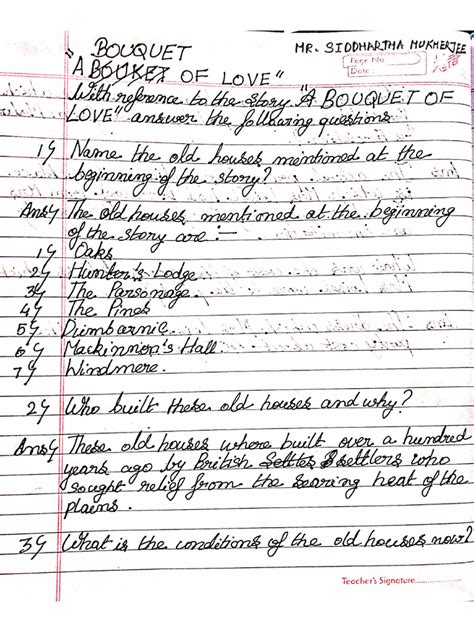 BOUQUET
MR. SIDDHARTHA MUKHERJEE
"A BOUKET OF LOVE"
Page No.
Date:
With reference to the story "A BOUQUET OF
LOVE" answer the following questions
1) Name the old houses mentioned at the
beginning of the story?
Ans) The old houses mentioned at the beginning
of the story are :-
1) Oaks
2) Hunter's Lodge
3) The Parsonage.
4) The Pines
5) Dumbarnie.
6) Mackinnon's Hall.
7) Windmere.
2) Who built these old houses and why?
Ans) These old houses where built over a hundred
years ago by British settlers who
sought relief from the searing heat of the
plains.
3) What is the conditions of the old houses now?
Teacher's Signature